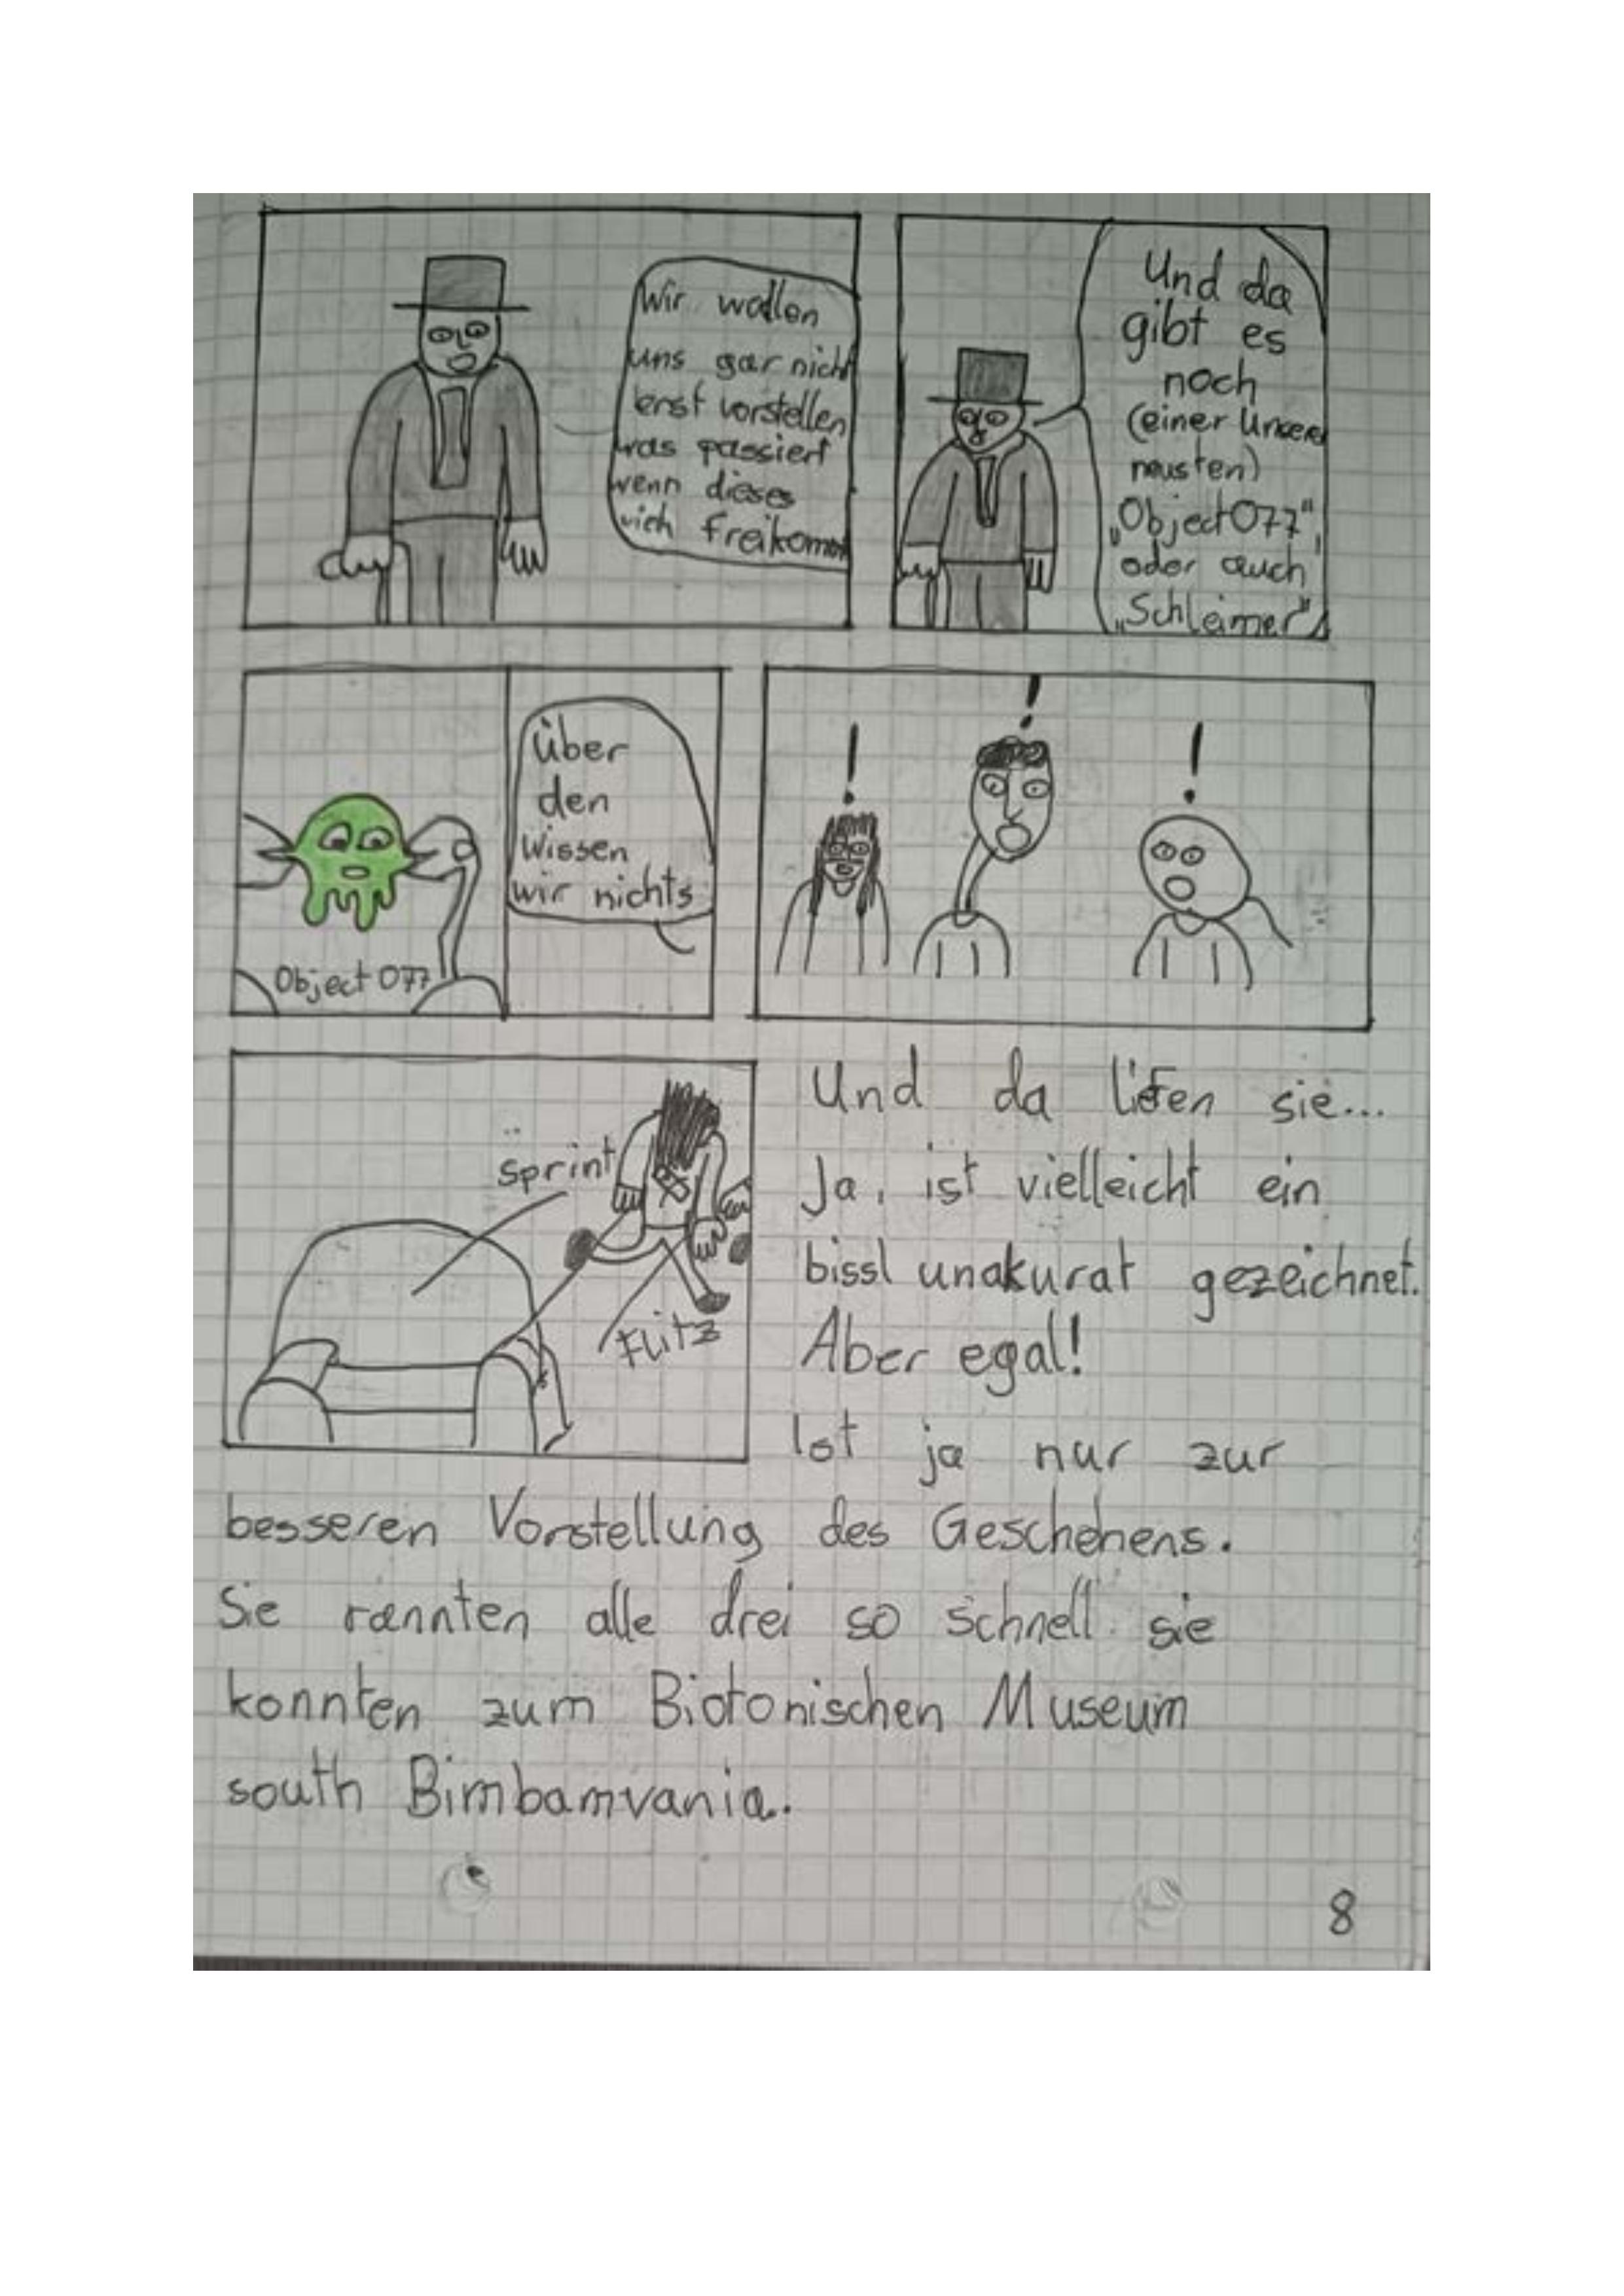 Wir wollen
uns gar nicht
erst vorstellen
was passiert
wenn dieses
vieh freikommt
Und da
gibt es
noch
(einer Unserer
neusten)
„Object 077“,
oder auch
„Schleimer“
Über
den
wissen
wir nichts
Object 077
!
!
!
Sprint
Flitz
Und da liefen sie...
Ja, ist vielleicht ein
bissl unakurat gezeichnet.
Aber egal!
Ist ja nur zur
besseren Vorstellung des Geschehens.
Sie rannten alle drei so schnell sie
konnten zum Biotonischen Museum
south Bimbamvania.
8